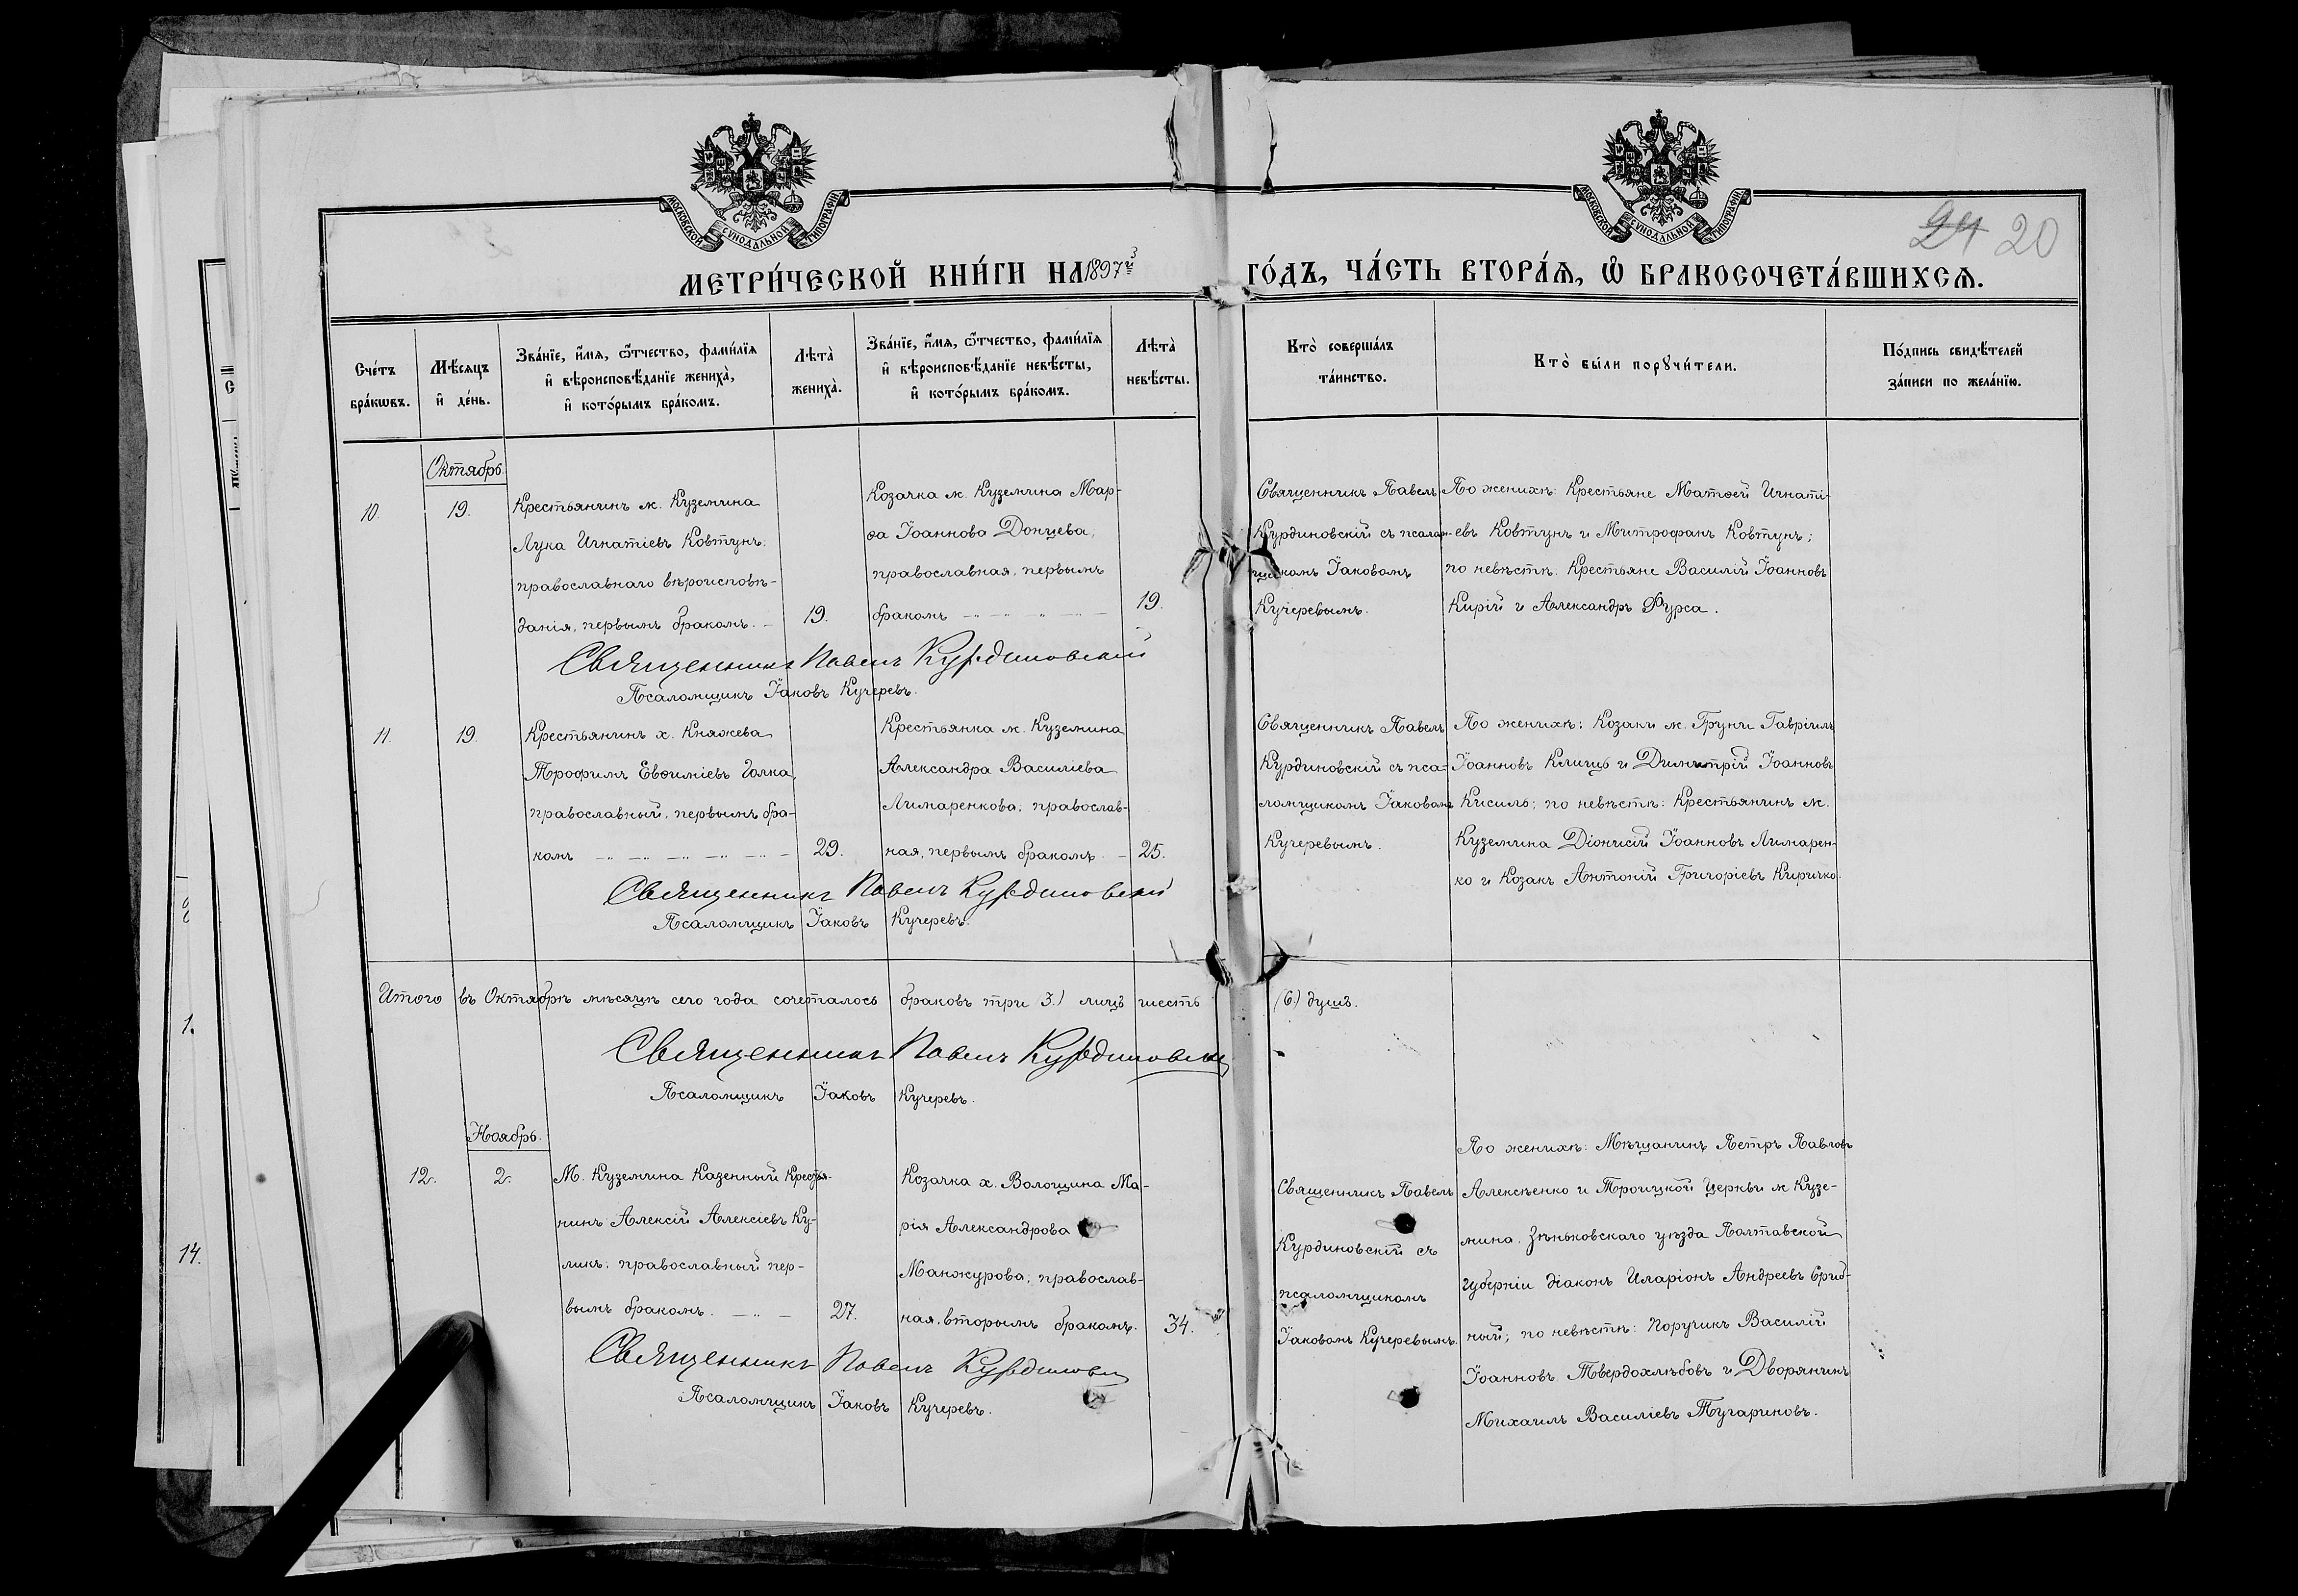 МОСКОВСКОЙ СѴНОДАЛЬНОЙ ТИПОГРАФІИ
МОСКОВСКОЙ СѴНОДАЛЬНОЙ ТИПОГРАФІИ
24 20
МЕТРИ́ЧЕСКОЙ КНИ́ГИ НА 1897й ГО́ДЪ, ЧА́СТЬ ВТОРА́Ѧ, Ѡ҆ БРАКОСОЧЕТА́ВШИХСѦ.
Сче́тъ
бра́кѡвъ.
Мѣ́сѧцъ
и҆ де́нь.
Зва́нїе, и҆́мѧ, ѻ҆́тчество, фами́лїѧ
и҆ вѣроисповѣ́данїе жениха̀,
и҆ кото́рымъ бра́комъ.
Лѣта̀
жениха̀.
Зва́нїе, и҆́мѧ, ѻ҆́тчество, фами́лїѧ
и҆ вѣроисповѣ́данїе невѣ́сты,
и҆ кото́рымъ бра́комъ.
Лѣта̀
невѣ́сты.
Кто̀ соверша́лъ
та́инство.
Кто̀ бы́ли порꙋчи́тели.
По́дпись свидѣ́телей
за́писи по жела́нїю.
Октябрь
10.
19.
Крестьянинъ м. Куземина
Лука Игнатіевъ Ковтунъ;
православнаго вѣроисповѣ-
данія, первымъ бракомъ. –
19.
Козачка м. Куземина Мар-
ѳа Іоаннова Донцева;
православная, первымъ
бракомъ
19.
Священникъ Павелъ
Курдиновскій съ псалом-
щикомъ Іаковомъ
Кучеревымъ.
По женихѣ: Крестьяне Матѳей Игнаті-
евъ Ковтунъ и Митрофанъ Ковтунъ;
по невѣстѣ: Крестьяне Василій Іоанновъ
Кирій и Александръ Фурса.
Священникъ Павелъ Курдиновскій
Псаломщикъ Іаковъ Кучеревъ.
11.
19.
Крестьянинъ х. Княжева
Трофимъ Евѳиміевъ Галка,
православный, первымъ бра-
комъ
29.
Крестьянка м. Куземина
Александра Василіева
Лимаренкова; православ-
ная, первымъ бракомъ. –
25.
Священникъ Павелъ
Курдиновскій съ пса-
ломщикомъ Іаковомъ
Кучеревымъ.
По женихѣ: Козаки м. Груни Гавріилъ
Іоанновъ Клицъ и Димитрій Іоанновъ
Кисиль; по невѣстѣ: Крестьянинъ м.
Куземина Діонисій Іоанновъ Лимарен-
ко и Козакъ Антоній Григоріевъ Киричко.
Священникъ Павелъ Курдиновскій
Псаломщикъ Іаковъ Кучеревъ.
Итого въ Октябрѣ мѣсяцѣ сего года сочеталось браковъ три 3.) лицъ шесть (6.) душъ.
Священникъ Павелъ Курдиновскій
Псаломщикъ Іаковъ Кучеревъ.
Ноябрь.
12.
2.
М. Куземина Казенный Крестья-
нинъ Алексій Алексіевъ Ку-
ликъ; православный пер-
вымъ бракомъ.
27.
Козачка х. Волощина Ма-
рія Александрова
Манжурова; православ-
ная, вторымъ бракомъ.
34.
Священникъ Павелъ
Курдиновскій съ
псаломщикомъ
Іаковомъ Кучеревымъ.
По женихѣ: Мѣщанинъ Петръ Павловъ
Алексѣенко и Троицкой Церкви м Кузе-
мина. Зѣньковскаго уѣзда Полтавской
Губерніи діаконъ Иларіонъ Андреевъ
ный; по невѣстѣ: Поручикъ Василій
Іоанновъ Твердохлѣбовъ и Дворянинъ
Михаилъ Василіевъ Тугариновъ.
Священникъ Павелъ
Псаломщикъ Іаковъ Кучеревъ.
1.
14.